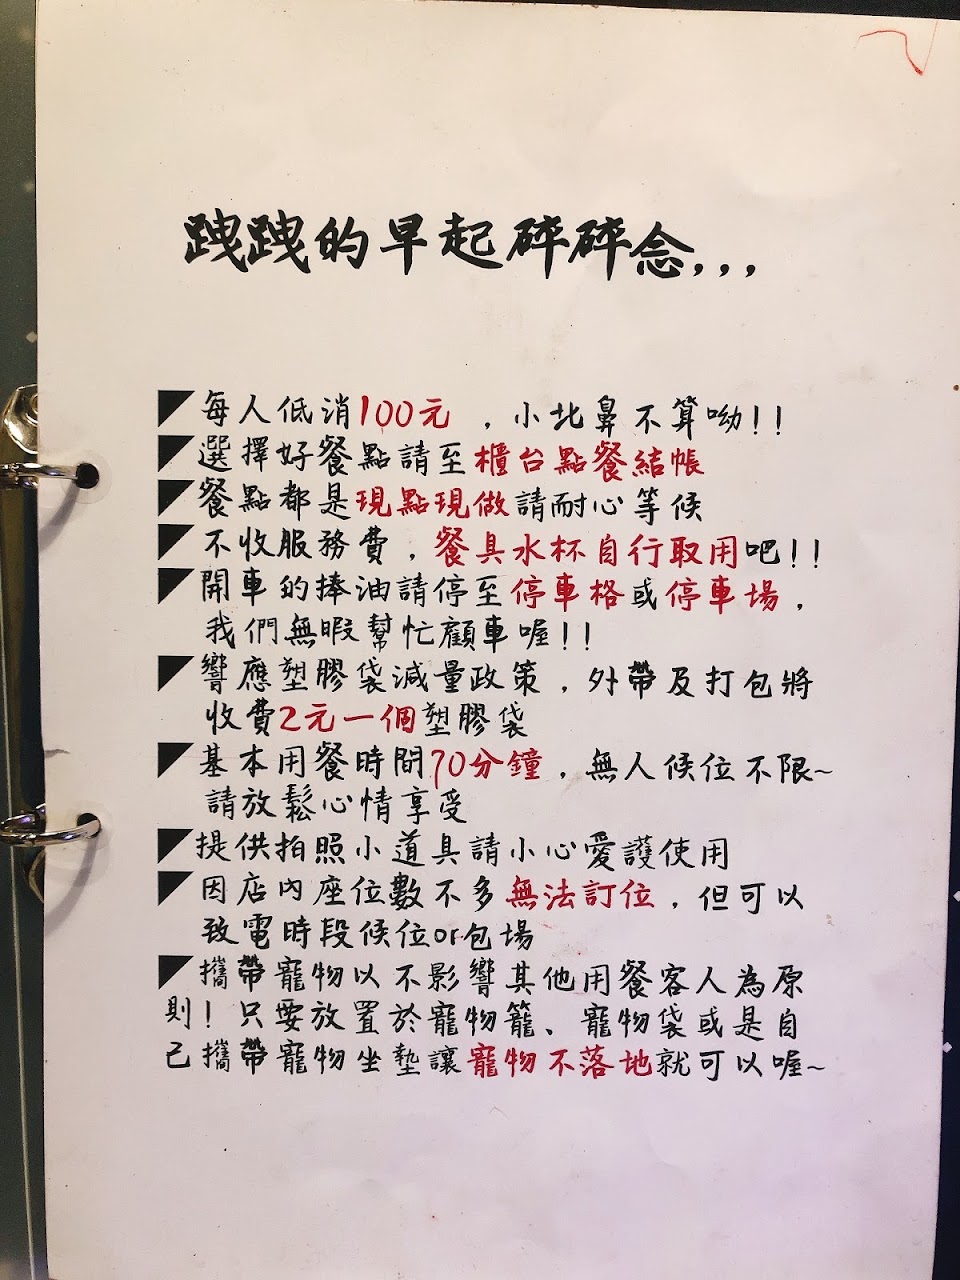 跩跩的早起碎碎念,,,
每人低消100元,小北鼻不算呦!!
選擇好餐點請至櫃台點餐結帳
餐點都是現點現做請耐心等候
不收服務費,餐具水杯自行取用吧!!
開車的捧油請停至停車格或停車場,
我們無暇幫忙顧車喔!!
響應塑膠袋減量政策,外帶及打包將
收費2元一個塑膠袋
基本用餐時間70分鐘,無人候位不限~
請放鬆心情享受
提供拍照小道具請小心愛護使用
因店內座位數不多無法訂位,但可以
致電時段候位or包場
攜帶寵物以不影響其他用餐客人為原
則!只要放置於寵物籠、寵物袋或是自
己攜帶寵物坐墊讓寵物不落地就可以喔~